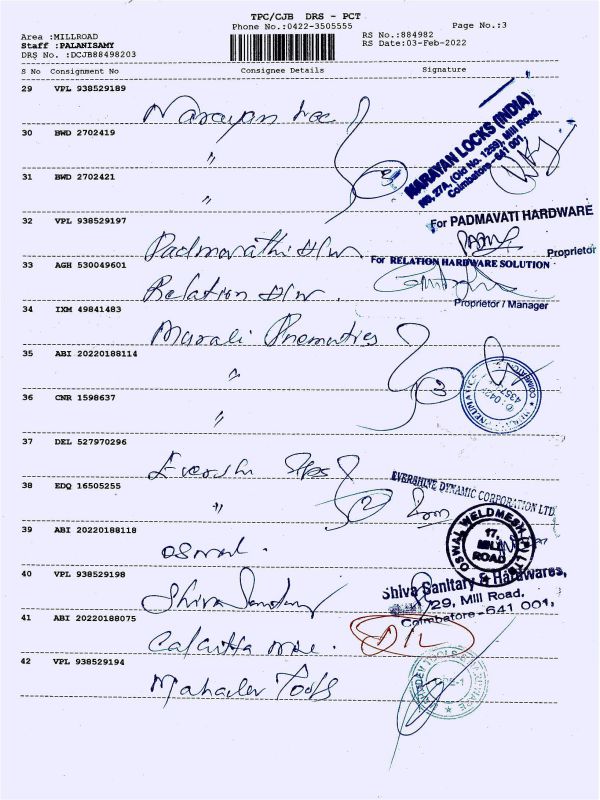 TPC/CJB DRS - PCT
Phone No.:0422-3505555
Page No.:3
Area :MILLROAD
RS No.:884982
Staff :PALANISAMY
RS Date:03-Feb-2022
DRS No. :DCJB88498203
S No Consignment No Consignee Details Signature
29 VPL 938529189
Narayan Loc
NARAYAN LOCKS (INDIA)
No. 27A, (Old No. 1259), Mill Road,
Coimbatore-641 001.
30 BWD 2702419
"
31 BWD 2702421
"
3
32 VPL 938529197
Padmavathi H/w
For PADMAVATI HARDWARE
Proprietor
33 AGH 530049601
Relation H/w.
For RELATION HARDWARE SOLUTION
Proprietor / Manager
34 IXM 49841483
Murali Pnematics
35 ABI 20220188114
"
3
36 CNR 1598637
"
37 DEL 527970296
EVERSHINE DYNAMIC CORPORATION LTD.
38 EDQ 16505255
"
2
39 ABI 20220188118
oswal.
OSWAL WELDMESH (P) LTD
17,
MILL
ROAD
40 VPL 938529198
Shiva Sanitary
Shiva Sanitary & Hardwares,
29, Mill Road.
Coimbatore-641 001,
41 ABI 20220188075
Calcutta
42 VPL 938529194
Mahadev Tools